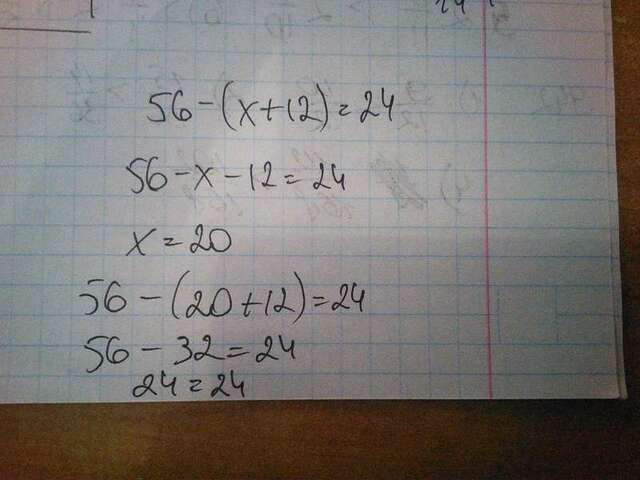 56-(x+12)=24
56-x-12=24
x=20
56-(20+12)=24
56-32=24
24=24